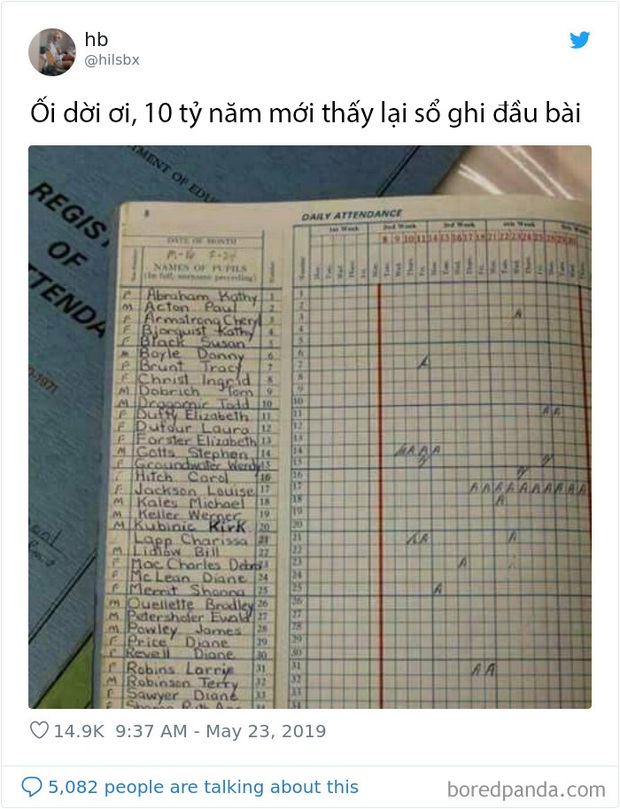 hb
@hilsbx
Ối dời ơi, 10 tỷ năm mới thấy lại sổ ghi đầu bài
REGIST
OF
TTENDA
MENT OF EDU
-1971
8
DAILY ATTENDANCE
DATE OF MONTH
1st Week 2nd Week 3rd Week 4th Week 5th Week
8 9 10 11 14 15 16 17 18 21 22 23 24 25 28 29 30
NAMES OF PUPILS
(In full, surname preceding)
F Abraham Kathy 1
M Acton Paul 2
F Armstrong Cheryl 3
F Bjorquist Kathy 4
F Black Susan 5
M Boyle Danny 6
F Brunt Tracy 7
F Christ Ingrid 8
M Dobrich Tom 9
M Dragomir Todd 10
F Duffy Elizabeth 11
F Dufour Laura 12
F Forster Elizabeth 13
M Gatts Stephen 14
F Groundwater Wendy 15
Hitch Carol 16
F Jackson Louise 17
M Kales Michael 18
M Keller Werner 19
M Kubinic Kirk 20
Lapp Charissa 21
M Lidlow Bill 22
F Mac Charles Debra 23
F McLean Diane 24
F Merrit Shonna 25
M Ouellette Bradley 26
M Petershofer Ewald 27
M Powley James 28
F Price Diane 29
F Revell Diane 30
F Robins Lorrie 31
M Robinson Terry 32
F Sawyer Diane 33
14.9K 9:37 AM - May 23, 2019
5,082 people are talking about this
boredpanda.com